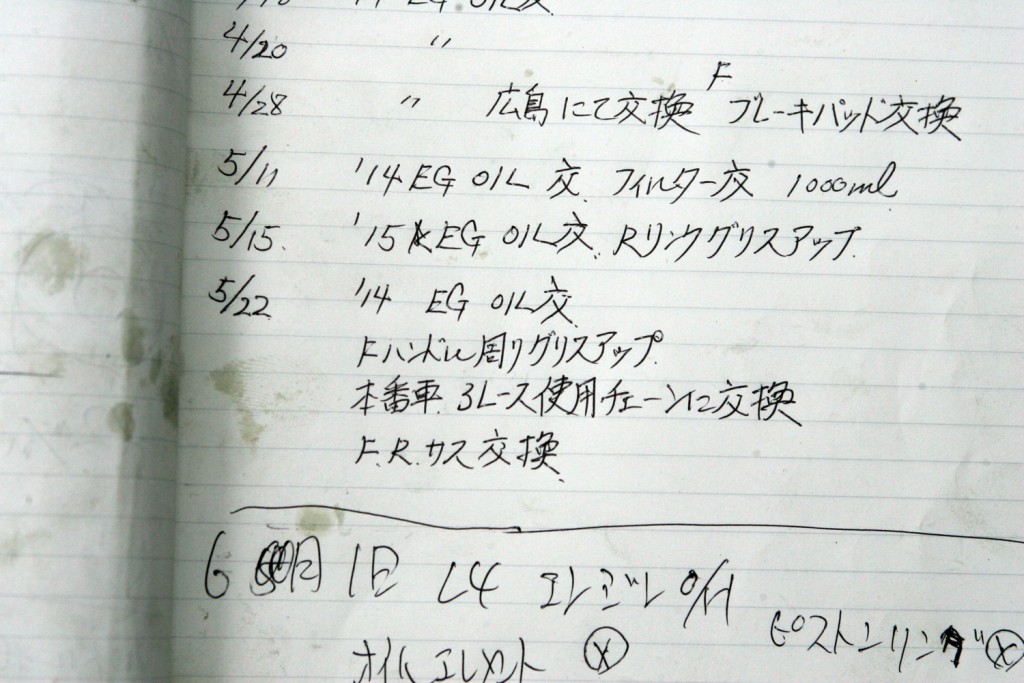 '14 EG OIL 交
4/20 〃
4/28 〃 広島にて交換 F ブレーキパッド交換
5/11 '14 EG OIL 交 フィルター交 1000ml
5/15. '15 EG OIL交. Rリンクグリスアップ.
5/22 '14 EG OIL交
Fハンドル周りグリスアップ.
本番車 3レース使用チェーンに交換
F.R.カス交換
6 月 1日 L4 エンジン O/H
ピストンリング ⓧ
オイルエレメント ⓧ